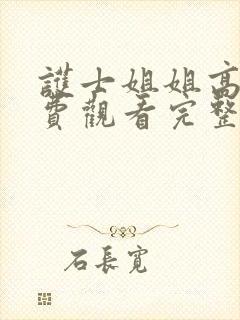 護士姐姐高
費觀看完整
石長寬